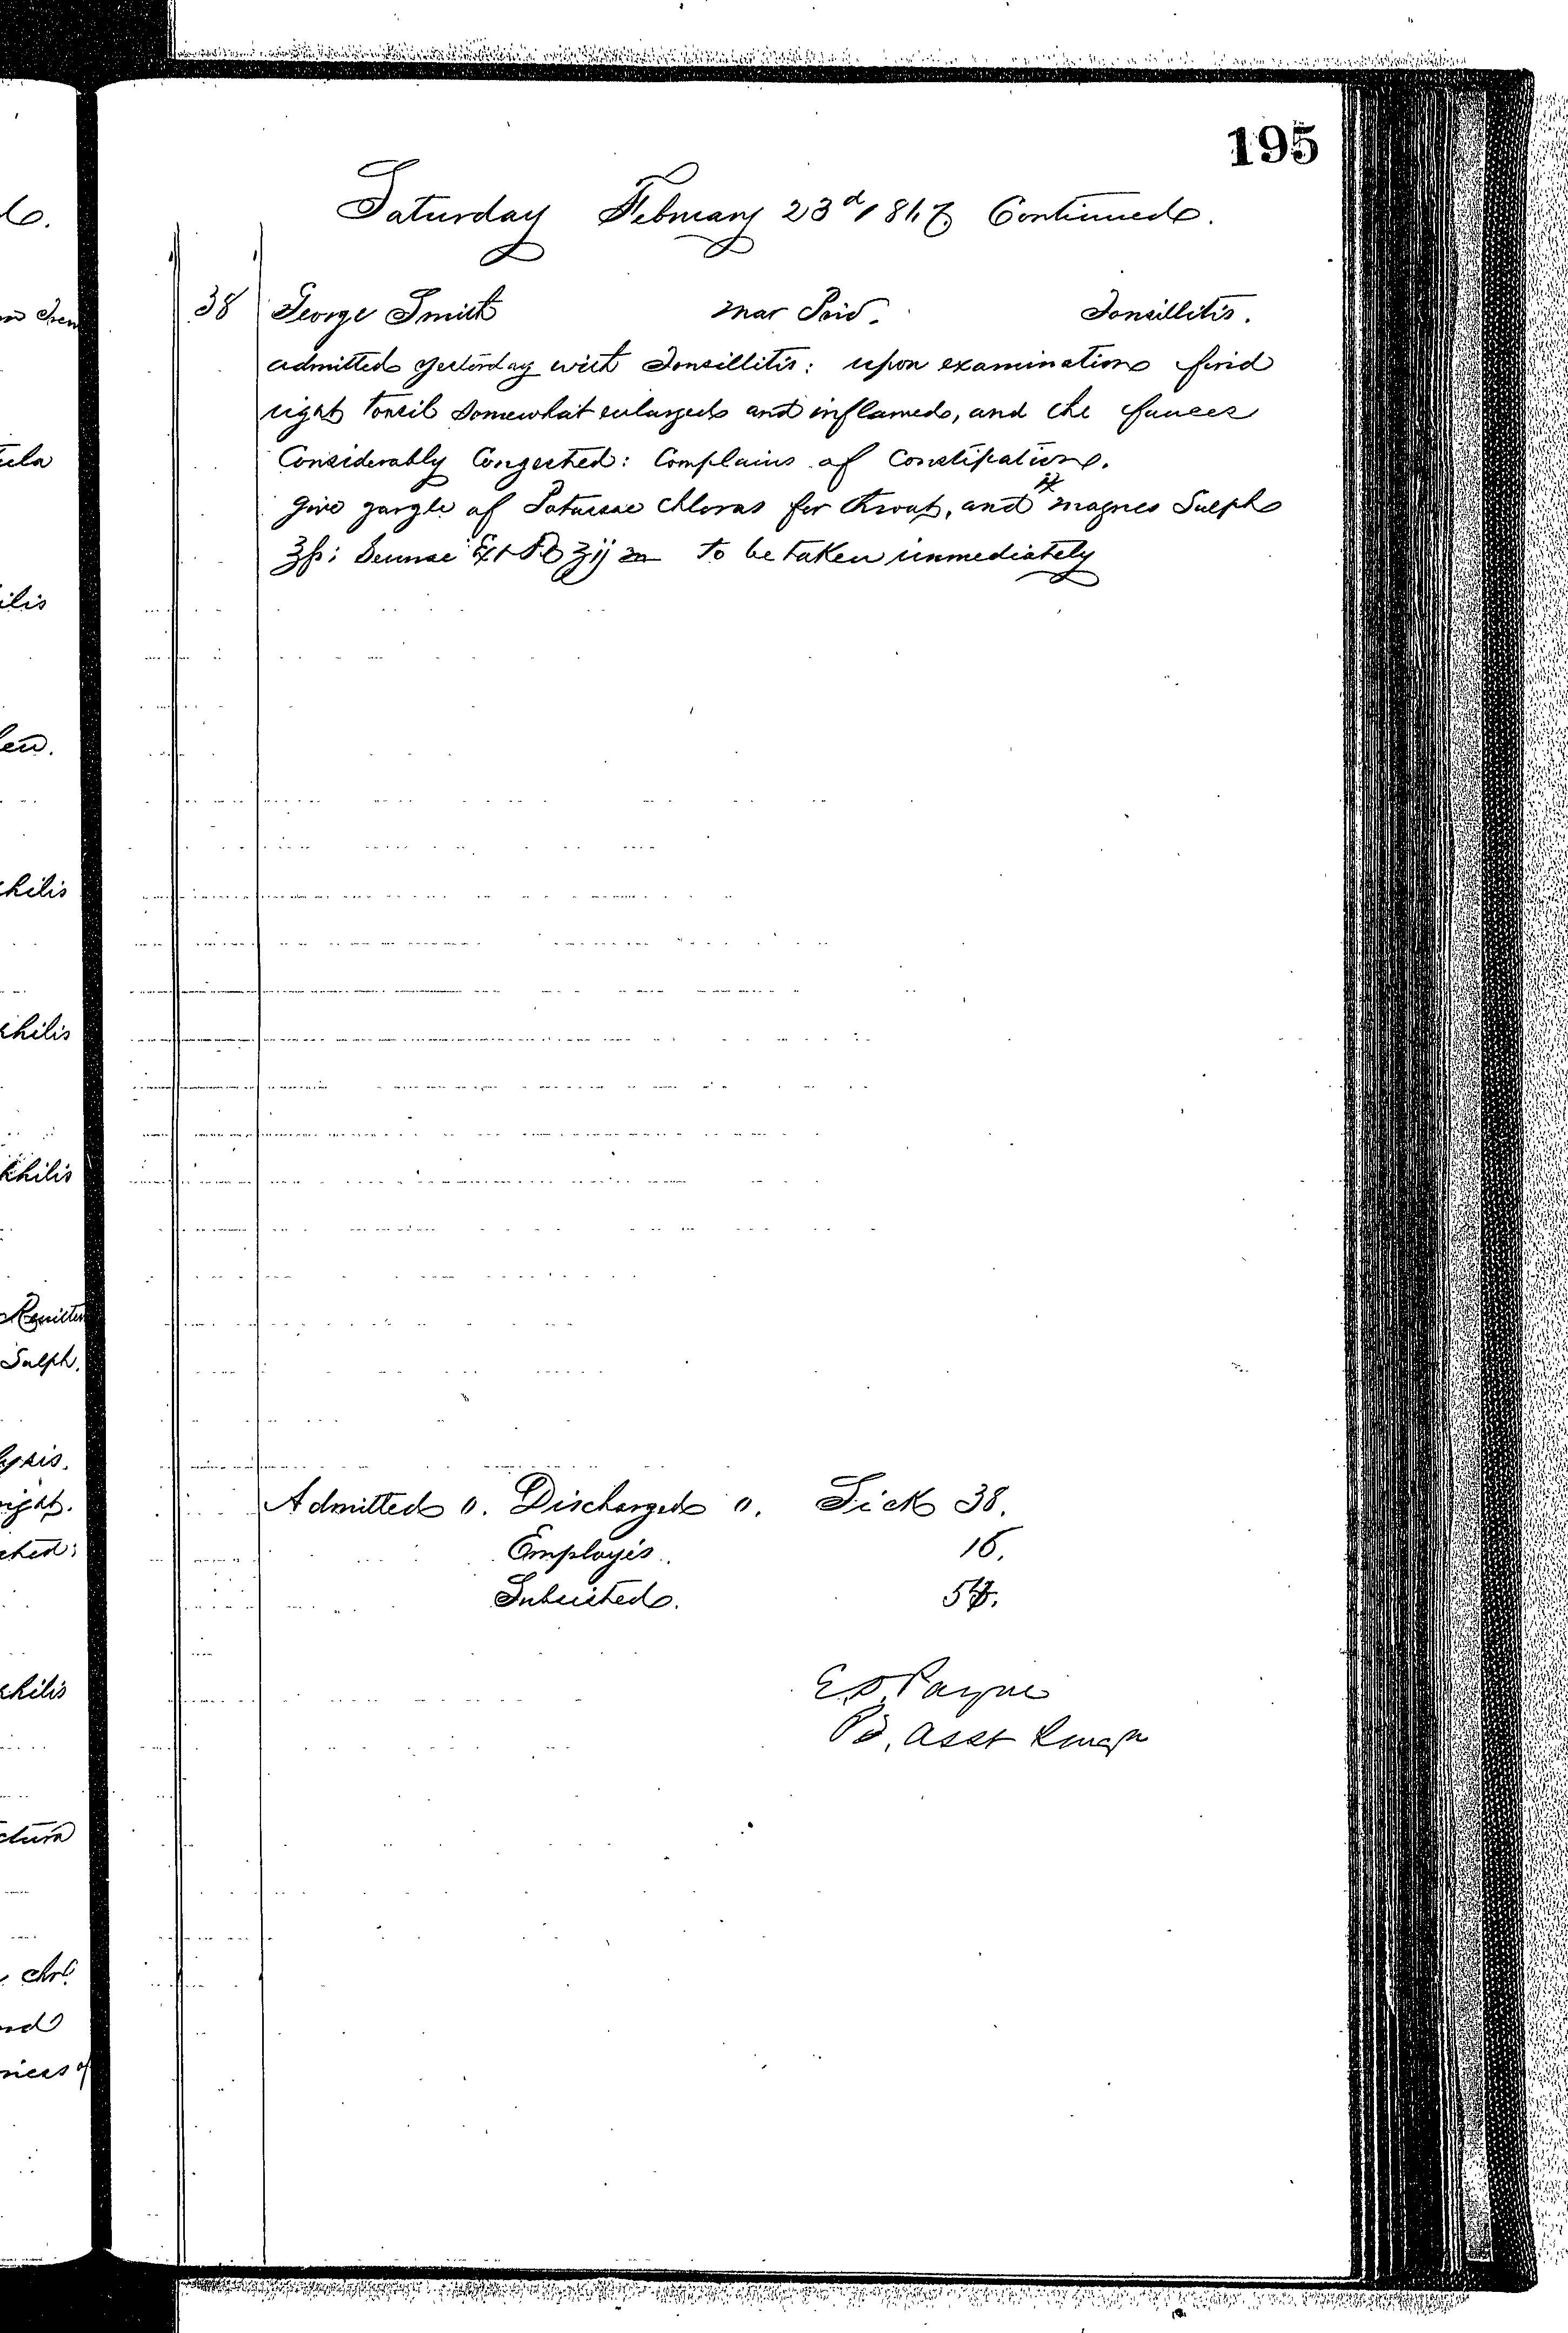 195
Saturday February 23d 1867. Continued.
38 George Smith Mar Priv. Tonsillitis.
admitted yesterday with Tonsillitis: upon examination find
right tonsil somewhat enlarged and inflamed, and the fauces
Considerably Congested: Complains of Constipation.
Give gargle of Potassae Chloras for throat, and ℞ magnes Sulph
℥ß: Sennae Ext Fl ʒij to be taken immediately
Admitted 0. Discharged 0. Sick 38.
Employés. 16.
Subsisted. 54.
E. S. Payne
Pd. Asst Surgn
ilis
philis
philis
philis
Sulph.
ysis.
right.
philis